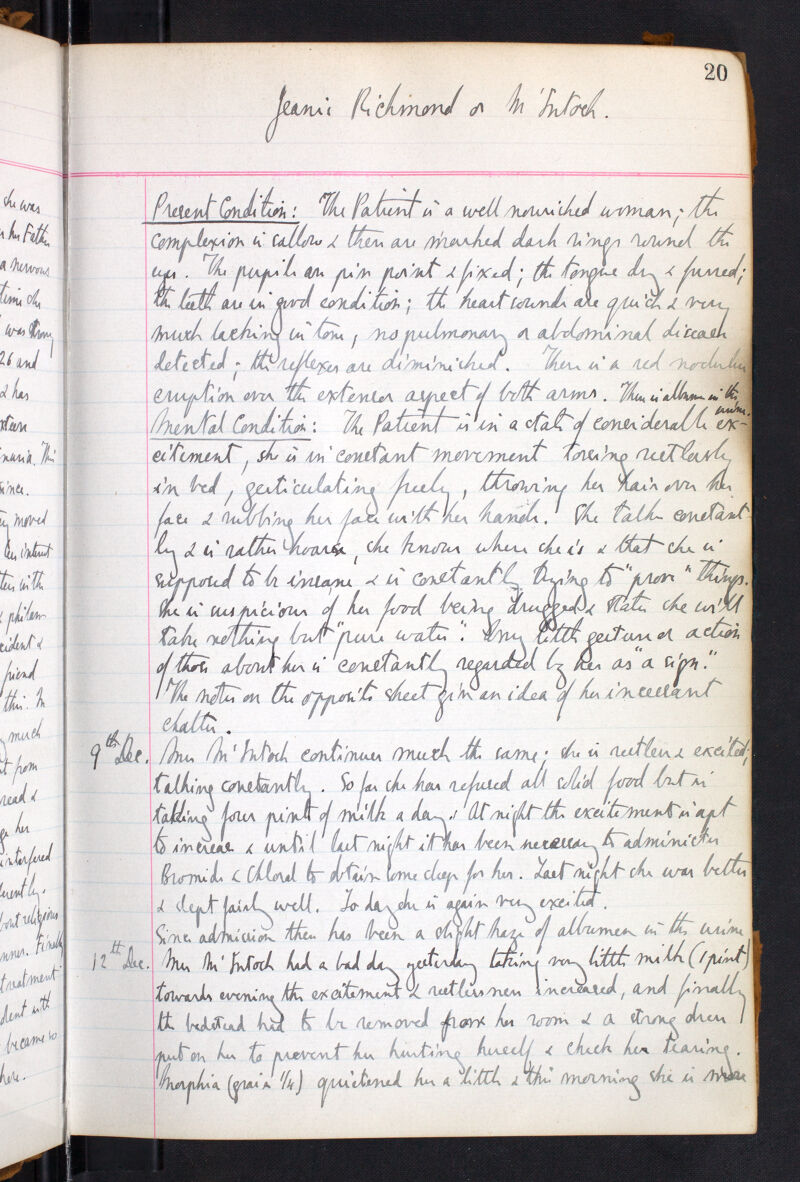 20
Jeanie Richmond or McIntosh.
Present Condition: The Patient is a well nourished woman; the
complexion is sallow & there are marked dark rings round the
eyes. The pupils are pin point & fixed; the tongue dry & furred;
the teeth are in good condition; the heart sounds are quick & very
much lacking in tone, no pulmonary or abdominal disease
detected; the reflexes are diminished. There is a red nodular
eruption over the extensor aspect of both arms. There is albumen in the
urine.
Mental Condition: The Patient is in a state of considerable ex-
citement, she is in constant movement tossing restlessly
in bed, gesticulating freely, throwing her hair over her
face & rubbing her face with her hands. She talks constant-
ly & is rather hoarse, she knows where she is & that she is
supposed to be insane & is constantly trying to "prove" things.
She is suspicious of her food being drugged & states she will
take nothing but "pure water". Every little gesture or action
of those about her is constantly regarded by her as "a sign."
The notes on the opposite sheet give an idea of her incessant
chatter.
9th Dec. Mrs McIntosh continues much the same; she is restless & excited;
talking constantly. So far she has refused all solid food but is
taking four pints of milk a day. At night the excitement is apt
to increase & until last night it has been necessary to administer
Bromide & Chloral to obtain some sleep for her. Last night she was better
& slept fairly well. To day she is again very excited.
Since admission there has been a slight haze of albumen in the urine
12th Dec. Mrs McIntosh had a bad day yesterday taking very little milk (1 pint)
towards evening the excitement & restlessness increased, and finally
the bedstead had to be removed from her room & a strong dress
put on her to prevent her hurting herself & check her tearing.
Morphia (grain 1/4) quietened her a little & this morning she is more
she was
her Father
a nervous
time she
was strong
26 and
& has
This
since.
moved
interest
with
& 
friend
this. In
much
from
read &
her
interfered
religious
Finally
treatment
became so
here.